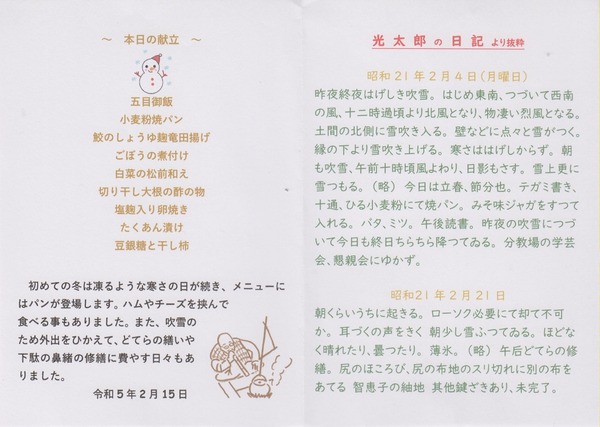 ～ 本日の献立 ～
五目御飯
小麦粉焼パン
鮫のしょうゆ麹竜田揚げ
ごぼうの煮付け
白菜の松前和え
切り干し大根の酢の物
塩麹入り卵焼き
たくあん漬け
豆銀糖と干し柿
初めての冬は凍るような寒さの日が続き、メニューに
はパンが登場します。ハムやチーズを挟んで
食べる事もありました。また、吹雪の
ため外出をひかえて、どてらの繕いや
下駄の鼻緒の修繕に費やす日々もあ
りました。
令和5年2月15日
光太郎の日記より抜粋
昭和21年2月4日(月曜日)
昨夜終夜はげしき吹雪。はじめ東南、つづいて西南
の風、十二時過頃より北風となり、物凄い烈風となる。
土間の北側に雪吹き入る。壁などに点々と雪がつく。
縁の下より雪吹き上げる。寒さははげしからず。朝
も吹雪、午前十時頃風よわり、日影もさす。雪上更に
雪つもる。(略) 今日は立春、節分也。テガミ書き、
十通、ひる小麦粉にて焼パン。みそ味ジャガをすつて
入れる。バタ、ミツ。午後読書。昨夜の吹雪につづ
いて今日も終日ちらちら降つてゐる。分教場の学芸
会、懇親会にゆかず。
昭和21年2月21日
朝くらいうちに起きる。ローソク必要にて却て不可
か。耳づくの声をきく 朝少し雪ふつてゐる。ほどな
く晴れたり、曇つたり。薄氷。(略) 午后どてらの修
繕。尻のほころび、尻の布地のスリ切れに別の布を
あてる 智恵子の紬地 其他鍵ざきあり、未完了。